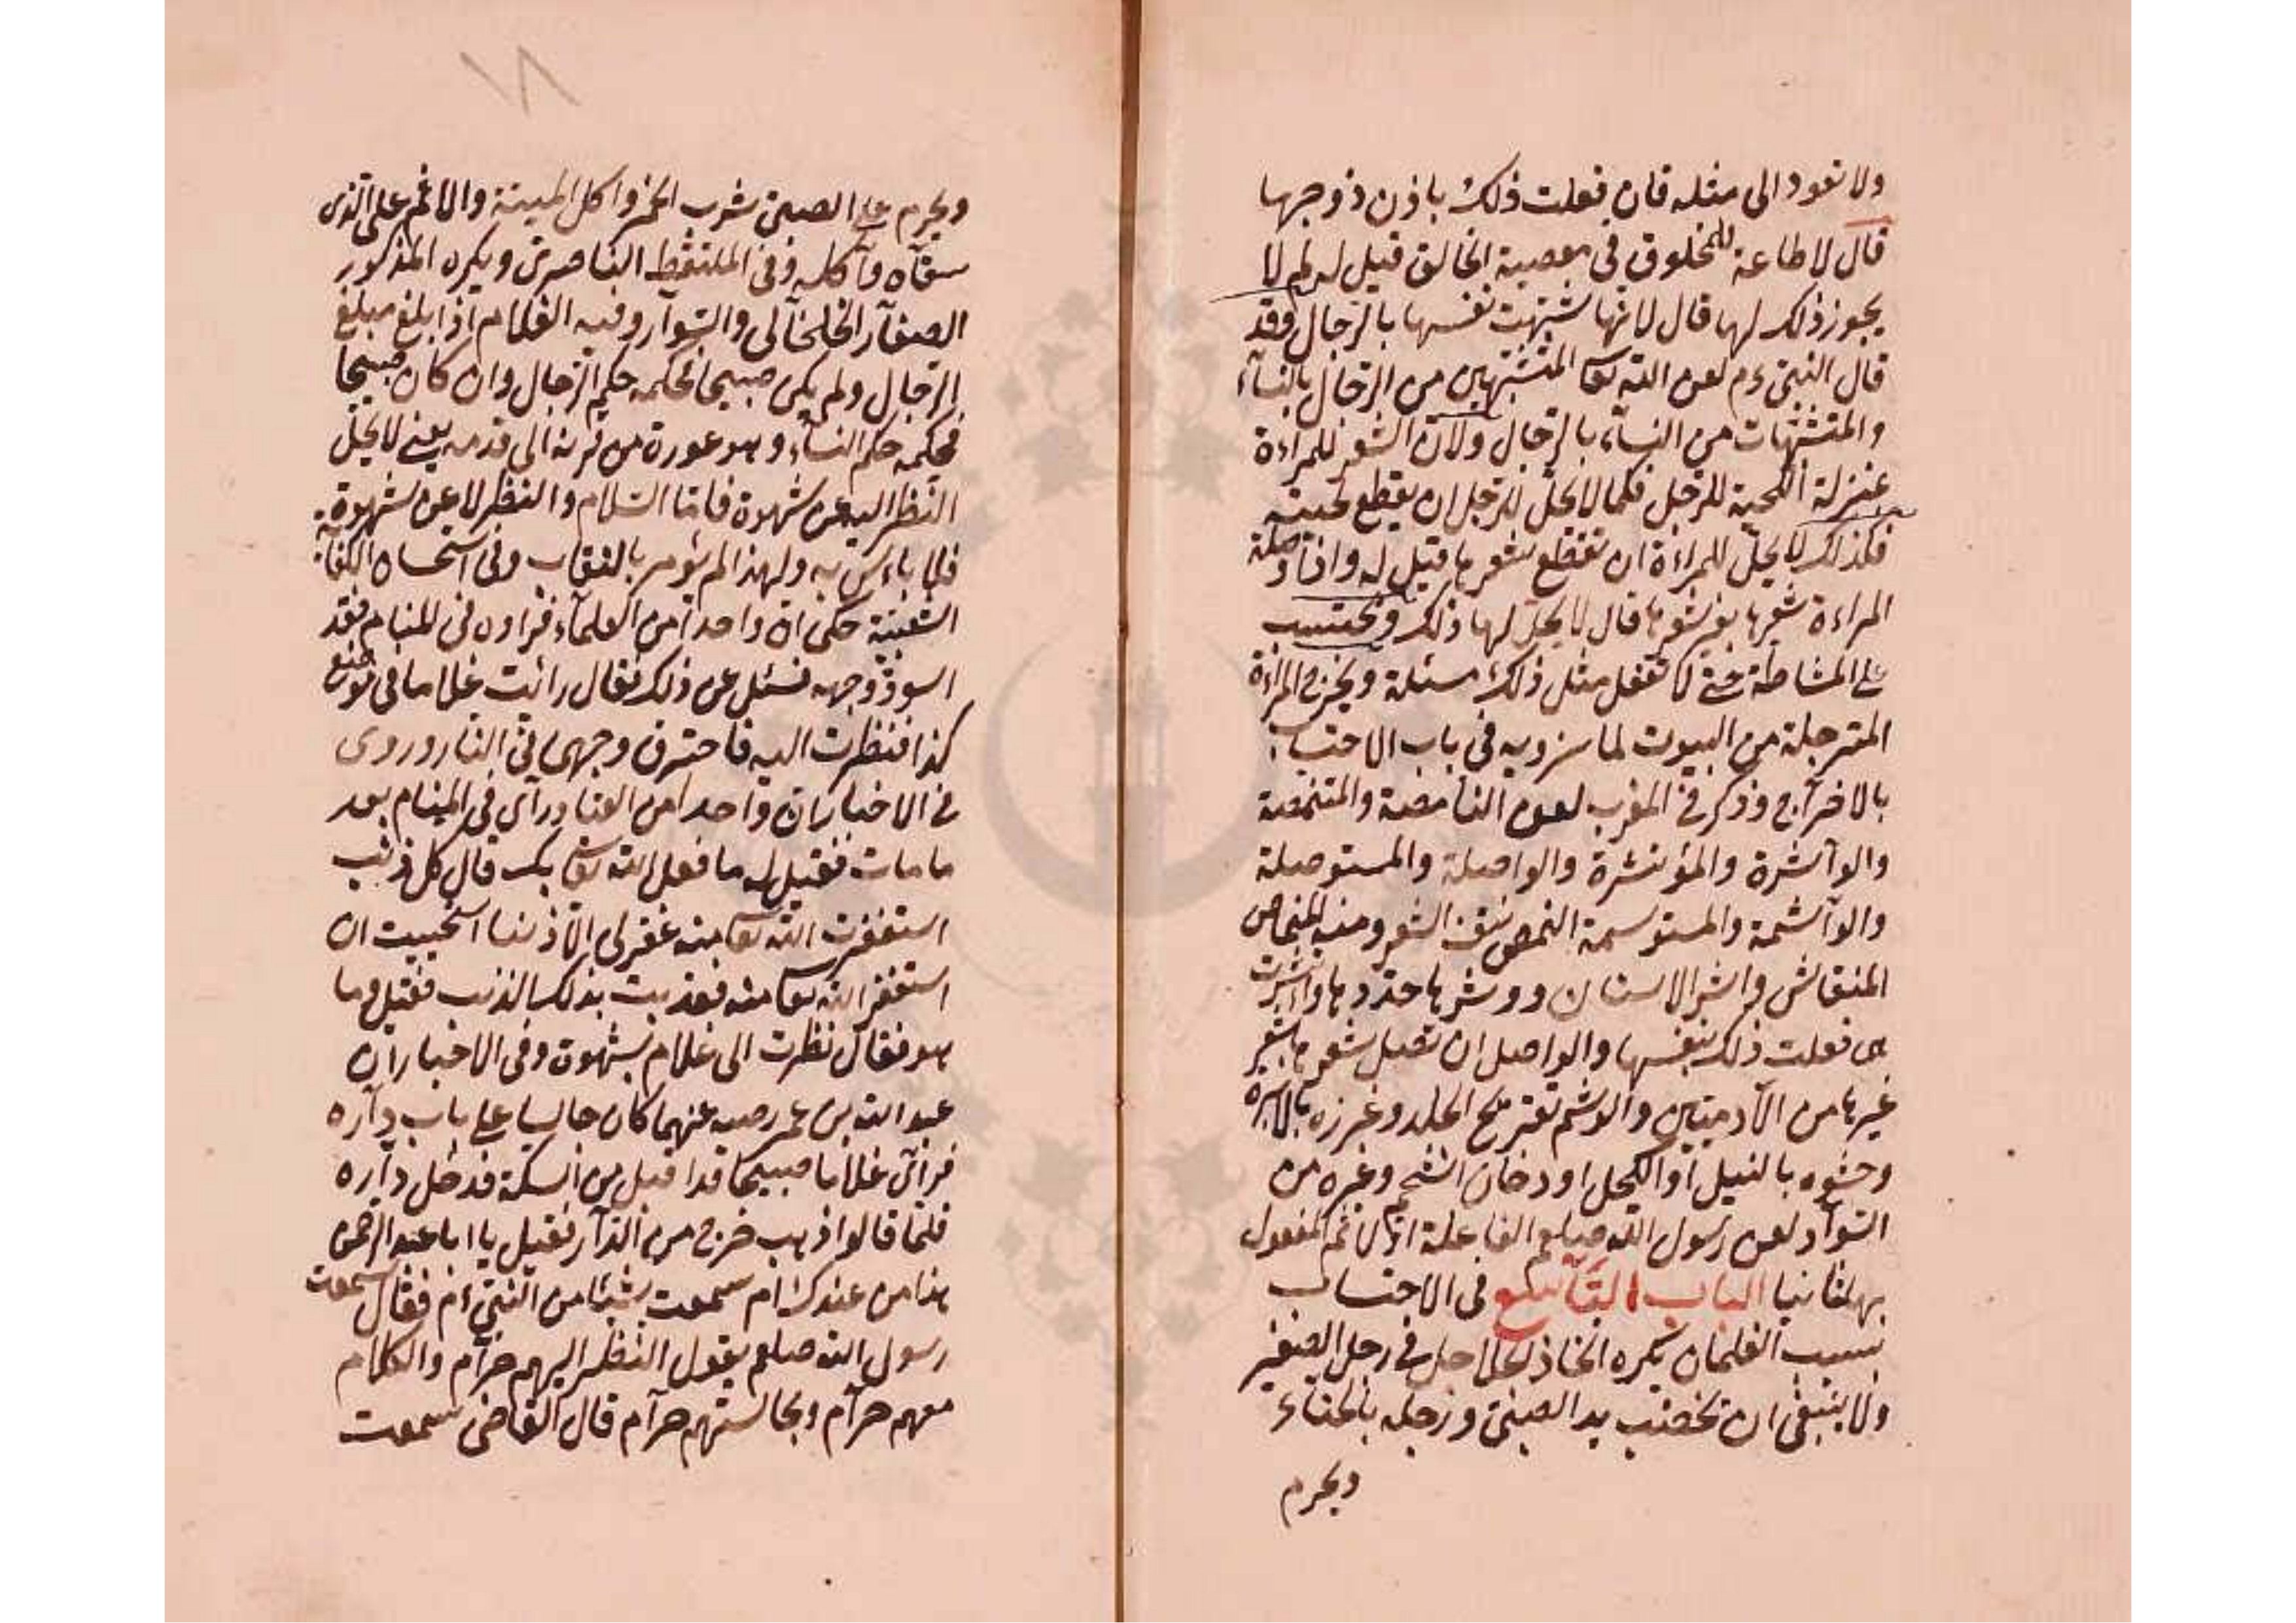 ولا تعود الى مثله فان فعلت ذلك باذن ذوجها
قال لا طاعة للمخلوق في معصية الخالق قيل له لم لا
يجوز ذلك لها قال لانها شبهت نفسها بالرجال وقد
قال النبى ءم لعن الله تعا المتشبهين من الرجال بالنسآء
والمتشبهات من النسآء بالرجال ولان الشعر للمراءة
بمنزلة اللحية للرجل فكما لا يحل للرجل ان يقطع لحيته
فكذلك لا يحل للمراءة ان تقطع شعرها قيل له واذا وصلة
المراءة شعرها بغير شعرها قال لا يحل لها ذلك ويحتسب
على المشاطة حتى لا تفعل مثل ذلك مسئلة ويخرج المراءة
المترجلة من البيوت لما نرويه فى باب الاحتساب
بالاخراج وذكر فى المغرب لعن النامصة والمتنمصة
والوآشرة والمؤتشرة والواصلة والمستوصلة
والوآشمة والمستوسمة النمص نتف الشعر ومنه المنماص
المنقاش واشر الاسنان ووشرها حددها واتشرت
هى فعلت ذلك بنفسها والواصل ان تصل شعرها بشعر
غيرها من الآدميين والوشم تقريح الجلد وغرزه بالابرة
وحشوه بالنيل او الكحل او دخان الشحم وغيره من
السوآد لعن رسول الله صلعم الفاعلة اولا ثم المفعول
بها ثانيا الباب التاسع فى الاحتساب
بسبب الغلمان يكره اتخاذ الخلاخل فى رجل الصغير
ولا ينبغى ان تخضب يد الصبى ورجله بالحناء
ويحرم
١٨
ويحرم على الصبى شرب الخمر واكل الميتة والاثم على الذى
سقاه وآكله وفى الملتقط الناصرى ويكره المذكور
الصغآر الخلخآلى والسوآر وفيه الغلام اذا بلغ مبلغ
الرجال ولم يكن صبيحا فحكمه حكم الرجال وان كان صبيحا
فحكمه حكم النسآء وهو عورة من قرنه الى قدمه يعنى لا يحل
النظر اليه عن شهوة فاما السلام والنظر لا عن شهوة
فلا باءس به ولهذا لم يؤمر بالنقاب وفى استحسان الكفاية
الشعبية حكى ان واحدا من العلمآء فراوه فى المنام فقد
اسود وجهه فسئل عن ذلك فقال رائت غلاما فى موضع
كذا فنظرت اليه فاحترق وجهى فى النار وروى
فى الاخبار ان واحدا من العبا ورآى فى المنام بعد
ما مات فقيل له ما فعل الله تعا بك قال كل ذنب
استغفرت الله تعا منه غفر لى الا ذنبا استحييت ان
استغفر الله تعا منه فعذبت بذلك الذنب فقيل وما
هو فقال نظرت الى غلام بشهوة وفى الاخبار ان
عبد الله بن عمر رضه عنهما كان جالسا على باب دآره
فرآى غلاما صبيحا قد اقبل من السكة فدخل دآره
فلما قالوا ذهب خرج من الدآر فقيل يا ابا عبد الرحمن
هذا من عندك ام سمعت شيئا من النبى ءم فقال سمعت
رسول الله صلعم يقول النظر اليهم حرآم والكلام
معهم حرآم ومجالستهم حرآم قال القاضى سمعت